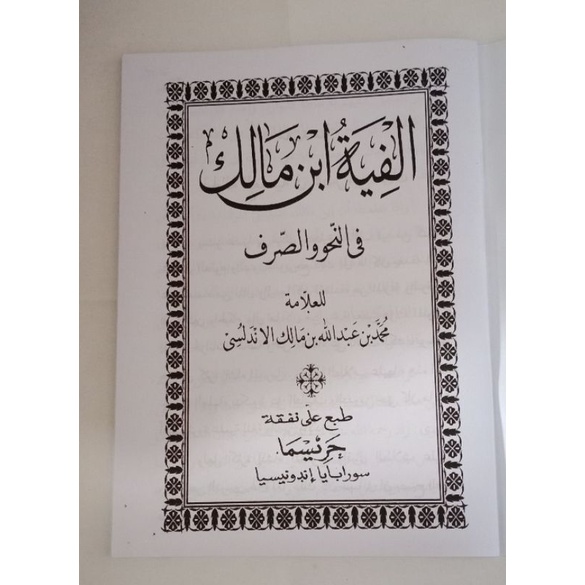 الفية ابن مالك
فى النحو والصرف
للعلامة
محمد بن عبد الله بن مالك الاندلسى
طبع على نفقة
حرىسما
سورابايا إندونيسيا